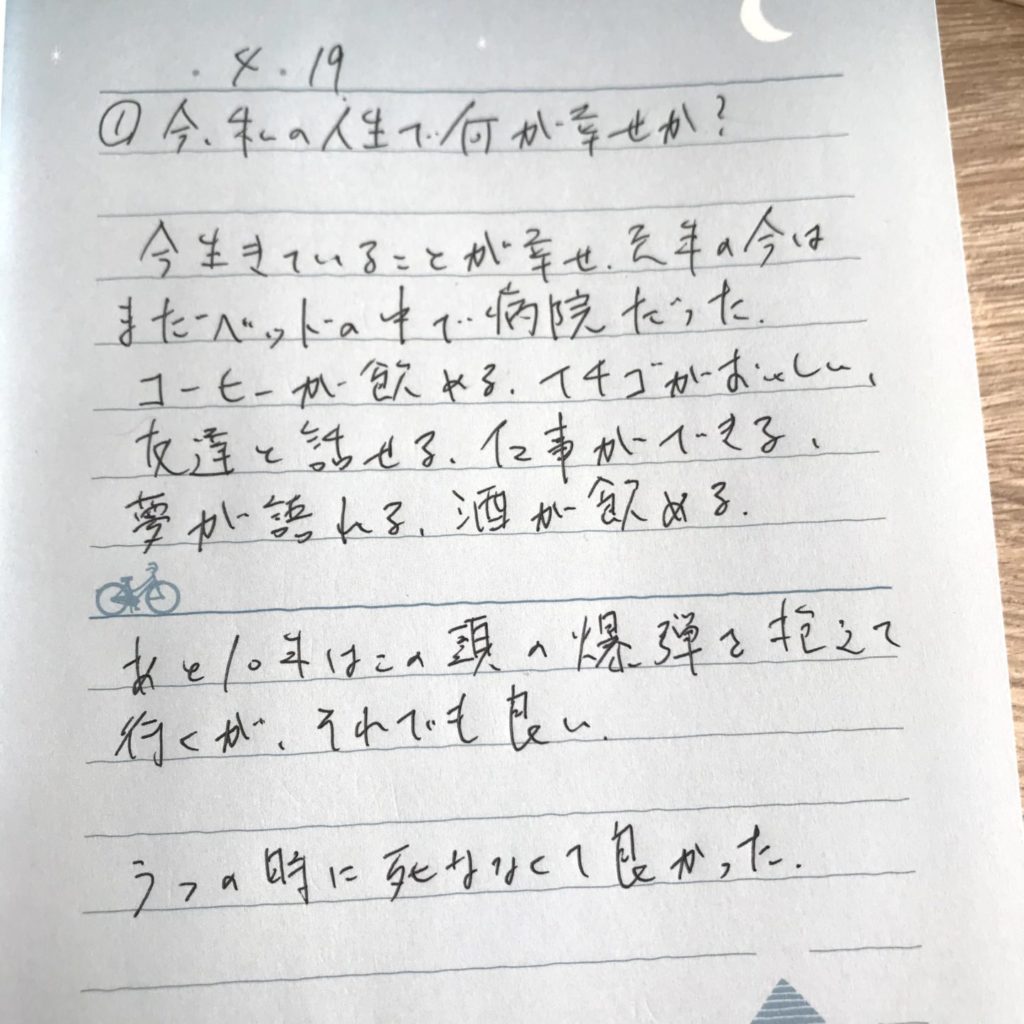 ・4・19
①今、私の人生で何が幸せか?
今生きていることが幸せ.去年の今は
まだベッドの中で病院だった.
コーヒーが飲める.イチゴがおいしい、
友達と話せる.仕事ができる、
夢が語れる、酒が飲める.
あと10年はこの頭の爆弾を抱えて
行くが、それでも良い.
うつの時に死ななくて良かった.